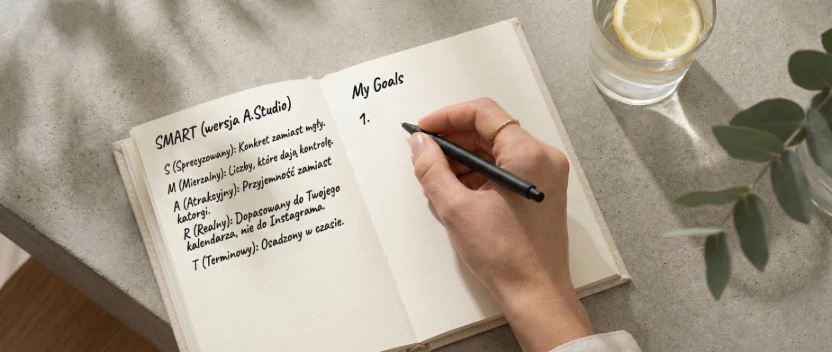 SMART (wersja A.Studio)
S (Sprecyzowany): Konkret zamiast mgły.
M (Mierzalny): Liczby, które dają kontrolę.
A (Atrakcyjny): Przyjemność zamiast
katorgi.
R (Realny): Dopasowany do Twojego
kalendarza, nie do Instagrama.
T (Terminowy): Osadzony w czasie.
My Goals
1.